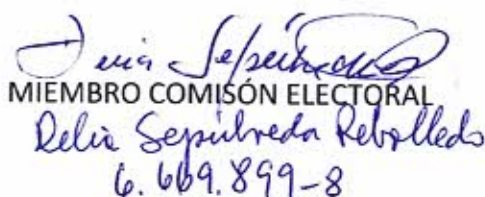 Delia Sepúlveda
MIEMBRO COMISÓN ELECTORAL
Delia Sepúlveda Rebolledo
6.669.899-8